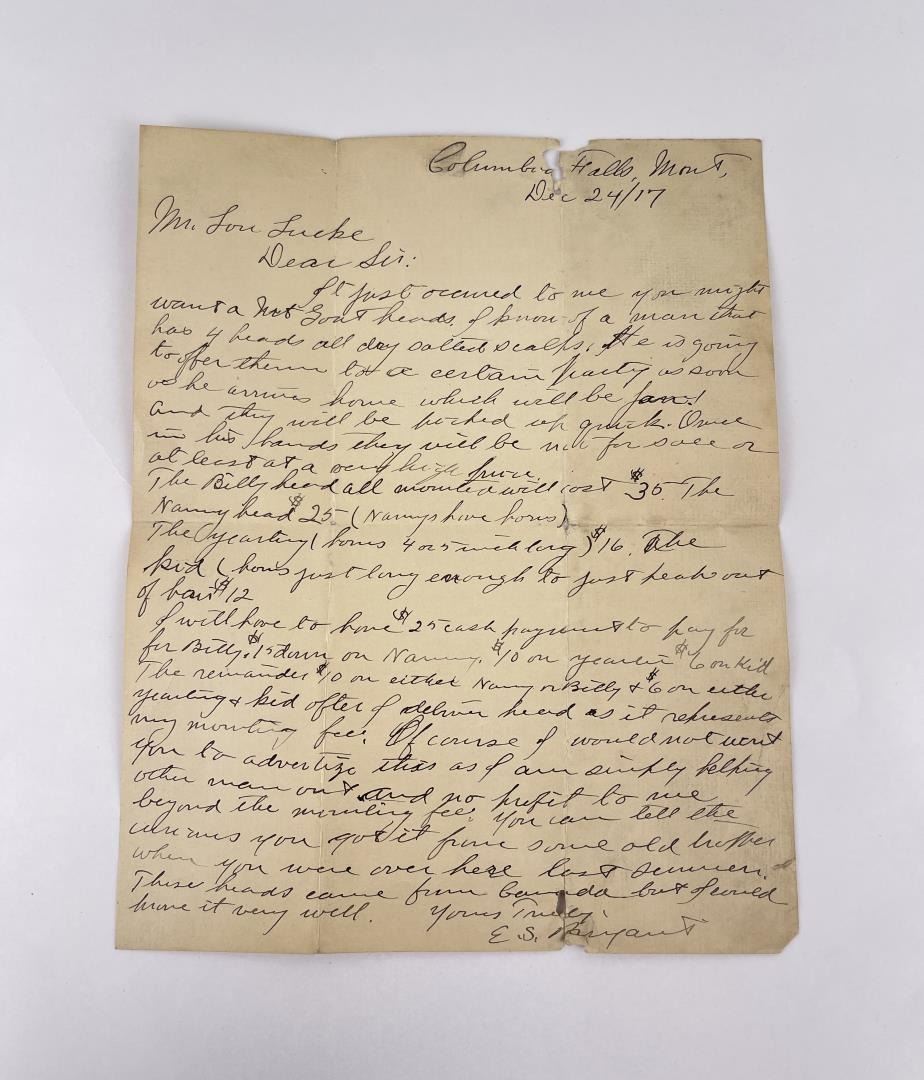 Columbia Falls, Mont,
Dec 24/17
Mr. Lou Lucke
Dear Sir:
It just occured to me you might
want a Mt Goat heads. I know of a man that
has 4 heads all dry salted scalps. He is going
to offer them to a certain party as soon
as he arrives home which will be Jan. 1
and they will be picked up quick. Once
in his hands they will be not for sale or
at least at a very high price.
The Billy head all mounted will cost $35. The
Nanny head $25 (Nannys have horns)
The yearling (horns 4 or 5 inch long) $16. The
kid (horns just long enough to just peak out
of hair $12
I will have to have $25 cash payment to pay for
for Billy. $15 down on Nanny. $10 on yearlin $6 on Kid
The remainder $10 on either Nanny or Billy & $6 on either
yearling & kid after I deliver head as it represents
my mounting fee. Of course I would not want
you to advertize this as I am simply helping
other man out and no profit to me
beyond the mounting fee. You can tell the
curious you got it from some old trapper
when you were over here last summer.
These heads came from Canada but I could
have it very well. Yours Truly,
E. S. Bryant